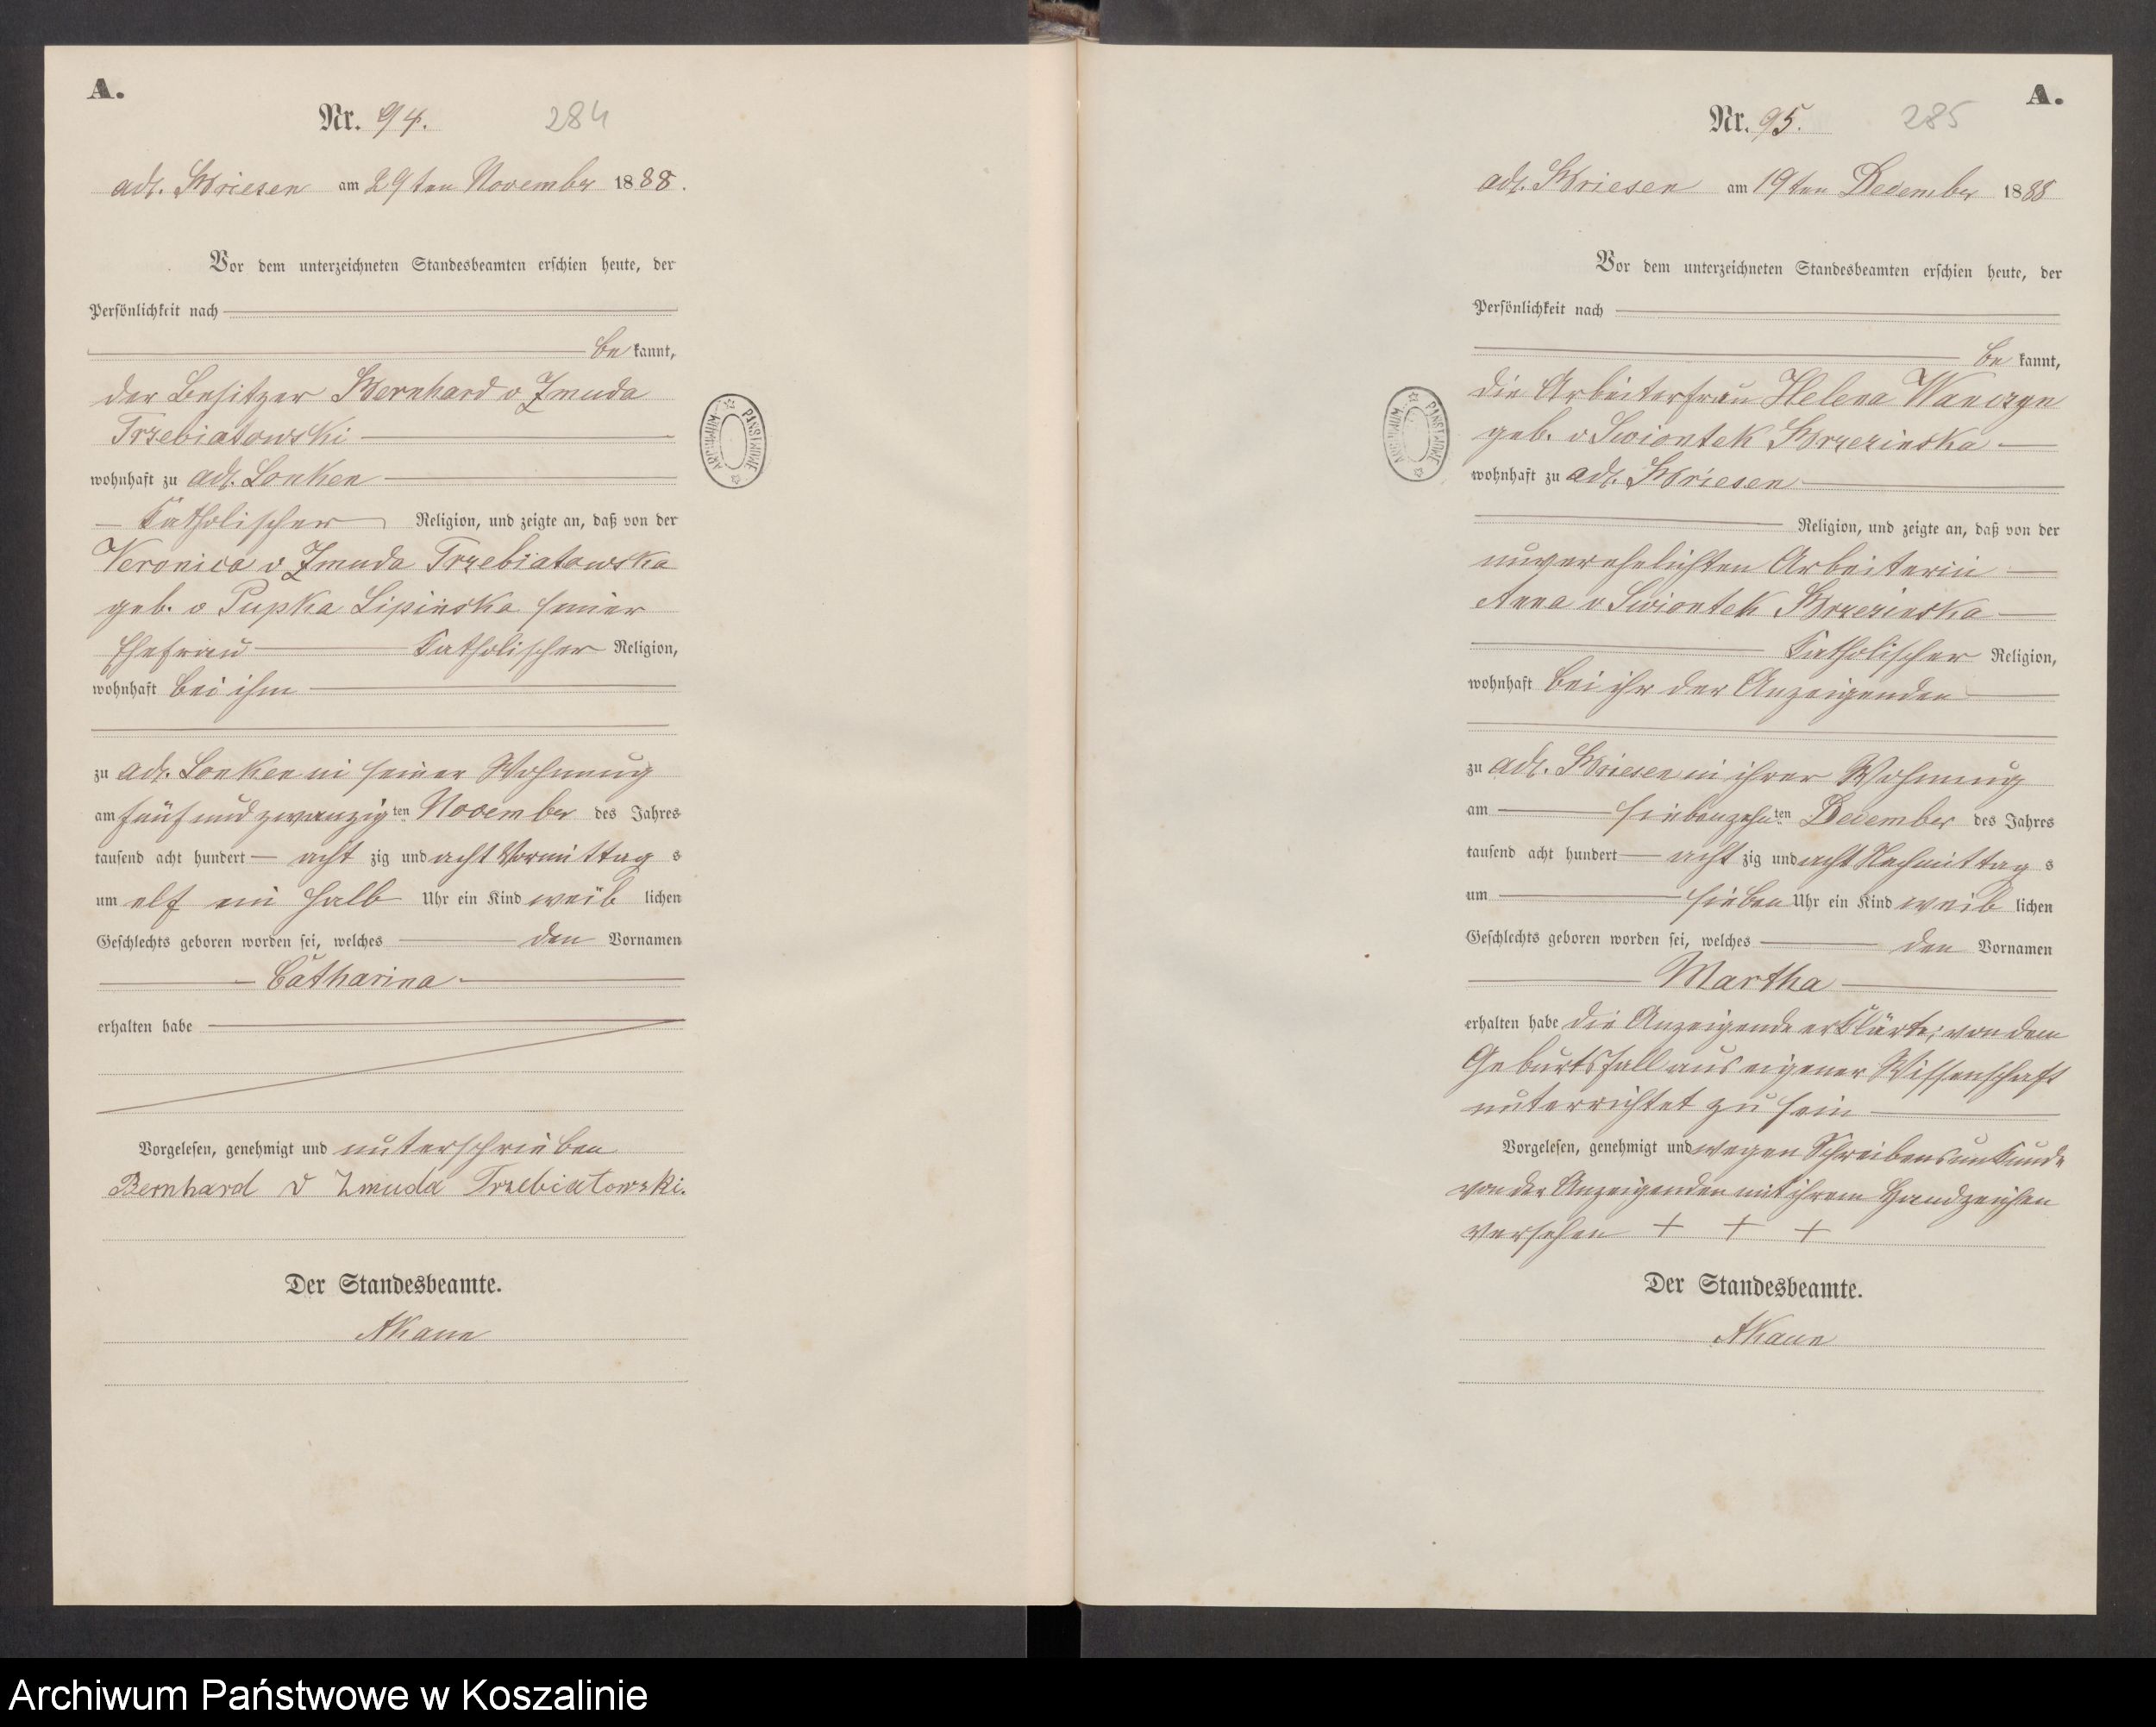 A.
Nr. 94.
284
adl. Briesen am 29ten November 1888.
Vor dem unterzeichneten Standesbeamten erschien heute, der
Persönlichkeit nach
be kannt,
der Besitzer Bernhard v Zmuda
Trzebiatowski
wohnhaft zu adl. Lonken
Katholischer Religion, und zeigte an, daß von der
Veronica v Zmuda Trzebiatowska
geb. v Pupka Lipinska seiner
Ehefrau Katholischer Religion,
wohnhaft bei ihm
zu adl. Lonken in seiner Wohnung
am fünf und zwanzig ten November des Jahres
tausend acht hundert acht zig und acht Vormittag s
um elf ein halb Uhr ein Kind weib lichen
Geschlechts geboren worden sei, welches den Vornamen
Catharina
erhalten habe
Vorgelesen, genehmigt und unterschrieben
Bernhard v Zmuda Trzebiatowski.
Der Standesbeamte.
AKane
ARCHIWUM PAŃSTWOWE
A.
Nr. 95.
285
adl. Briesen am 19ten December 1888
Vor dem unterzeichneten Standesbeamten erschien heute, der
Persönlichkeit nach
be kannt,
die Arbeiterfrau Helena Wanczyn
geb. v Swiontek Brzezinska
wohnhaft zu adl. Briesen
Religion, und zeigte an, daß von der
unverehelichten Arbeiterin
Anna v Swiontek Brzezinska
Katholischer Religion,
wohnhaft bei ihr der Anzeigenden
zu adl. Briesen in ihrer Wohnung
am siebenzehn ten December des Jahres
tausend acht hundert acht zig und acht Nachmittag s
um sieben Uhr ein Kind weib lichen
Geschlechts geboren worden sei, welches den Vornamen
Martha
erhalten habe die Anzeigende erklärte, von dem
Geburtsfall aus eigener Wissenschaft
unterrichtet zu sein
Vorgelesen, genehmigt und wegen Schreibensunkunde
von der Anzeigenden mit ihrem Handzeichen
versehen + + +
Der Standesbeamte.
AKane
ARCHIWUM PAŃSTWOWE
Archiwum Państwowe w Koszalinie